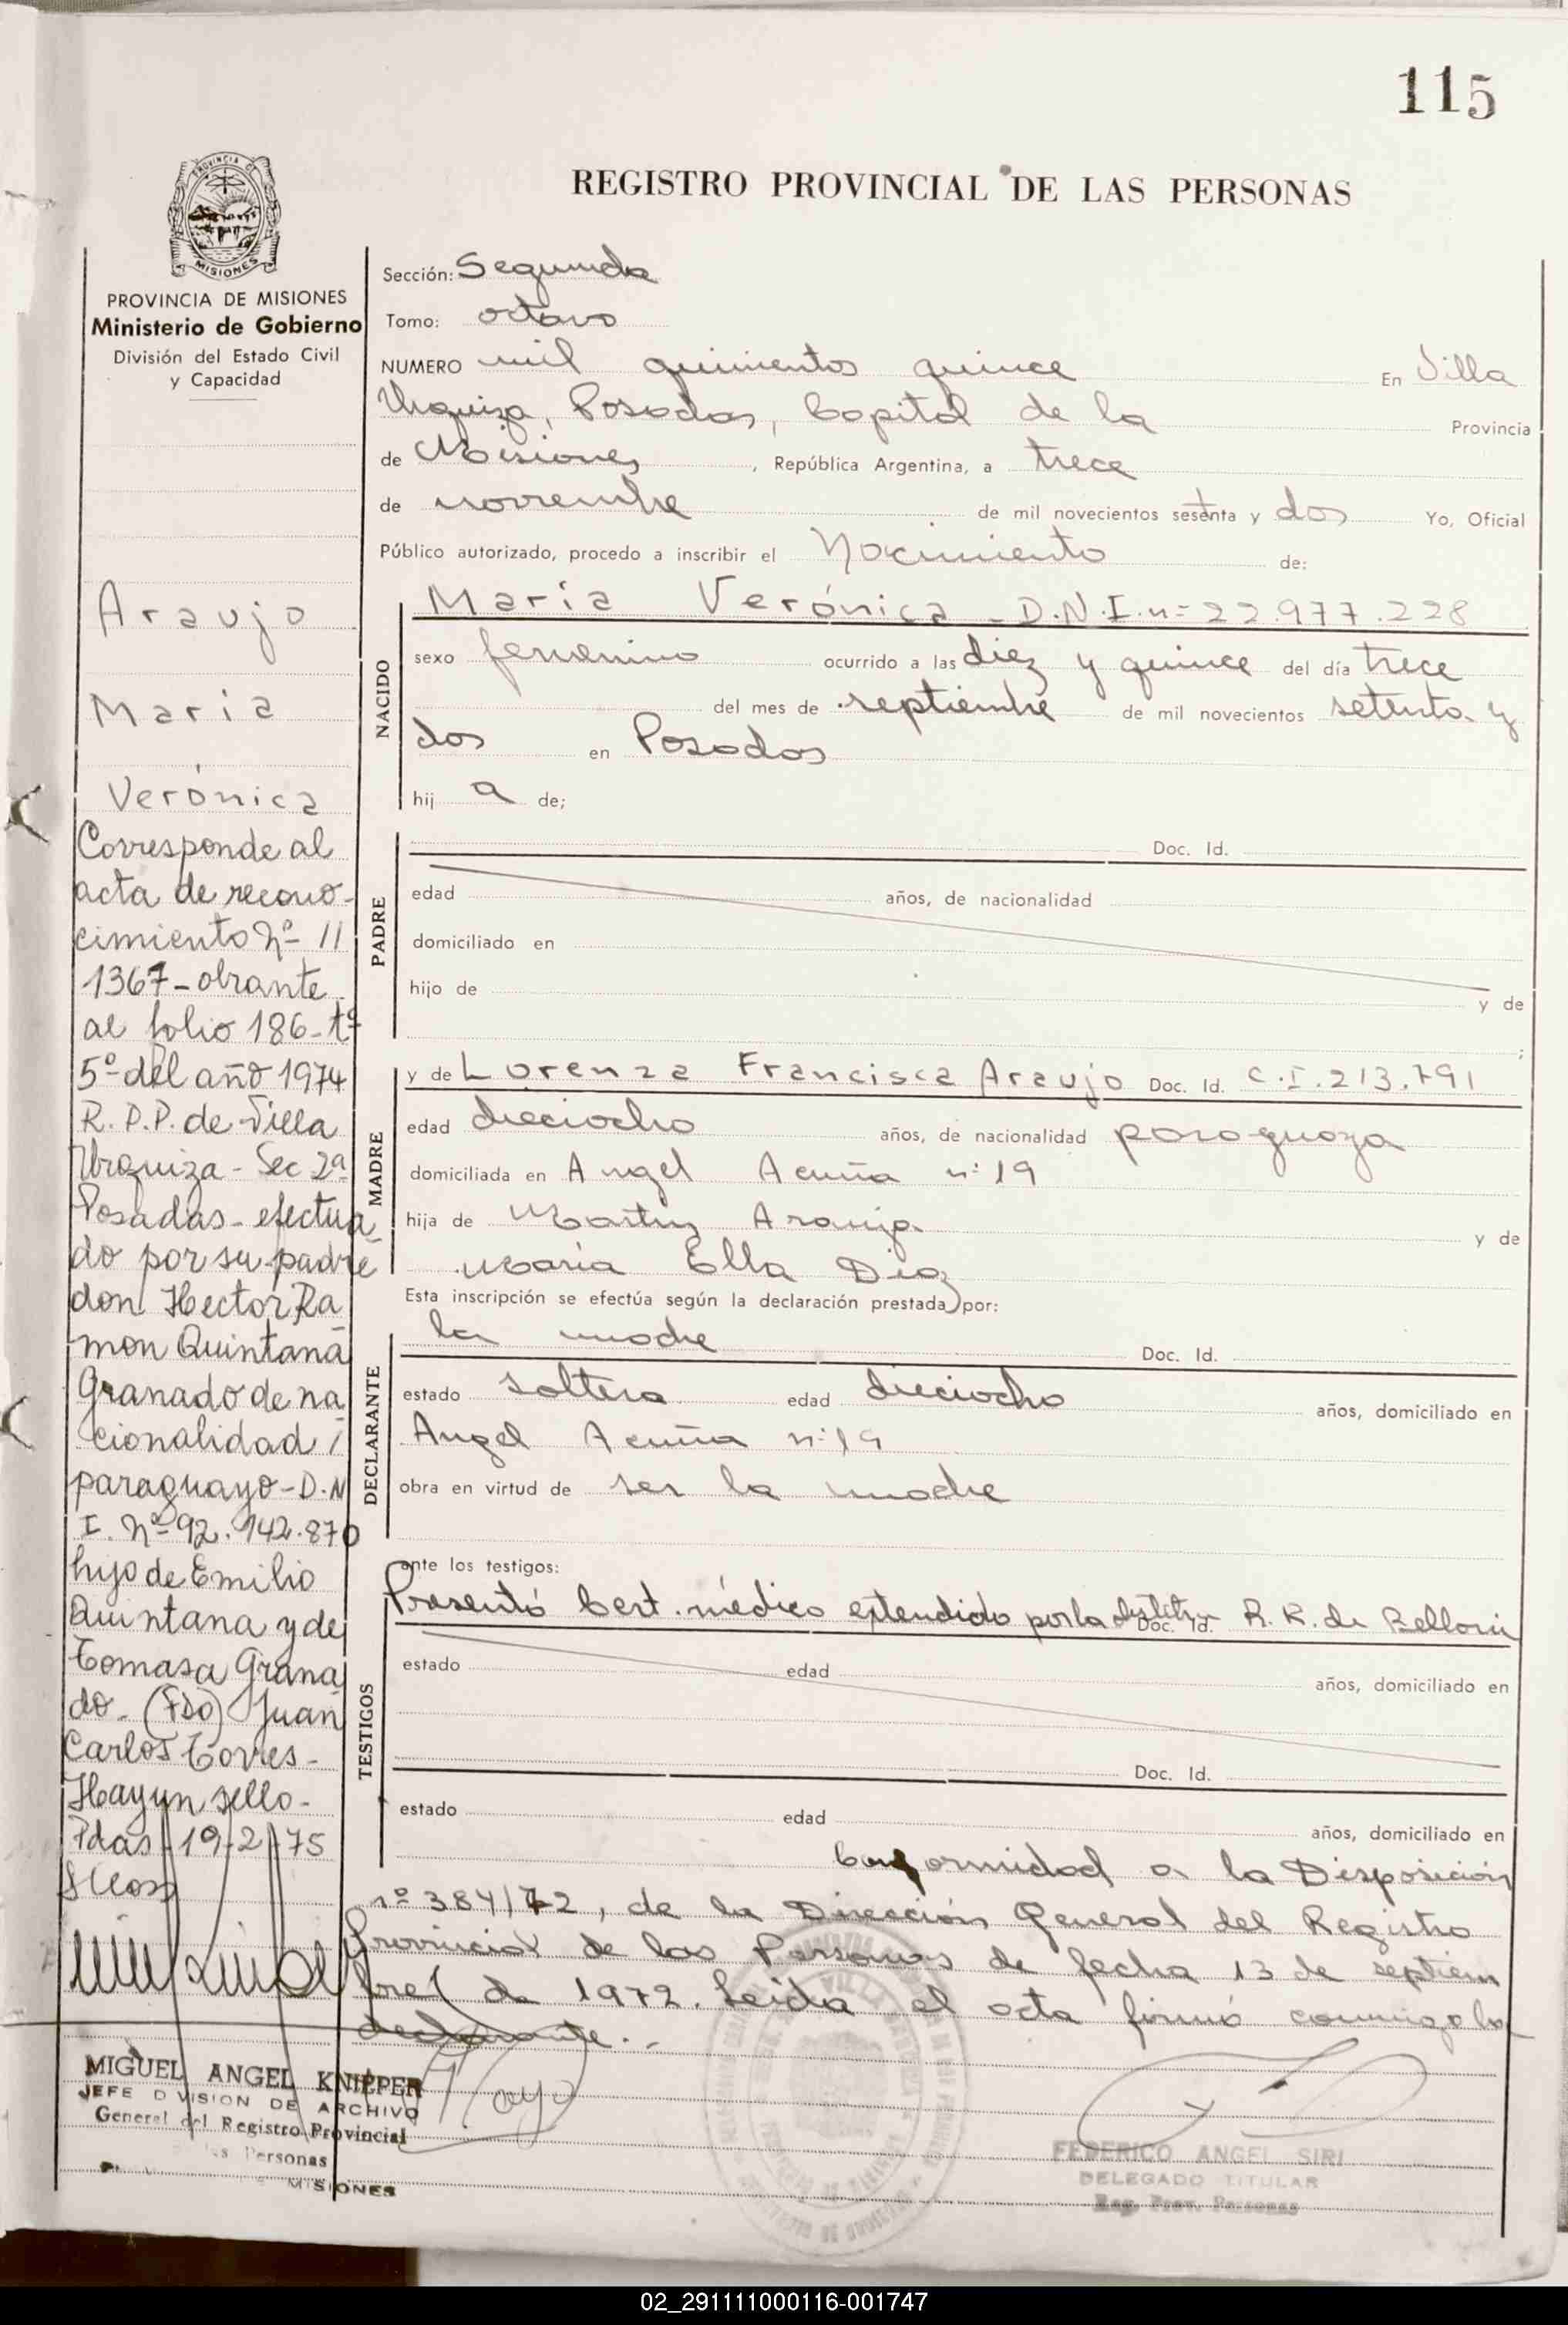 115
REGISTRO PROVINCIAL DE LAS PERSONAS
PROVINCIA DE MISIONES
Ministerio de Gobierno
División del Estado Civil
y Capacidad
Araujo
Maria
Verónica
Corresponde al
acta de recono-
cimiento Nº 11
1367 - obrante
al folio 186 - tº
5º del año 1974
R. P. P. de Villa
Urquiza - Sec 2ª
Posadas - efectua
do por su padre
don Hector Ra
mon Quintana
Granado de na
cionalidad
paraguayo - D. N
I. Nº 92.142.870
hijo de Emilio
Quintana y de
Tomasa Grana
do. (FDO) Juan
Carlos Torres -
Hay un sello -
Pdas 19-2-75
MIGUEL ANGEL KNIEPER
JEFE DIVISION DE ARCHIVO
General del Registro Provincial
Personas
MISIONES
Sección: Segunda
Tomo: octavo
NUMERO mil quinientos quince En Villa
Urquiza, Posadas, Capital de la Provincia
de Misiones, República Argentina, a trece
de noviembre de mil novecientos setenta y dos Yo, Oficial
Público autorizado, procedo a inscribir el Nacimiento de:
NACIDO
María Verónica - D.N.I. n= 22.977.228
sexo femenino ocurrido a las diez y quince del día trece
del mes de septiembre de mil novecientos setenta y
dos en Posadas
hij a de;
PADRE
Doc. Id.
edad años, de nacionalidad
domiciliado en
hijo de y de
;
MADRE
y de Lorenza Francisca Araujo Doc. Id. C.I. 213.791
edad dieciocho años, de nacionalidad paraguaya
domiciliada en Angel Acuña nº 19
hija de Martin Araujo y de
María Ella Diaz
Esta inscripción se efectúa según la declaración prestada por:
DECLARANTE
la madre Doc. Id.
estado soltera edad dieciocho años, domiciliado en
Angel Acuña nº 19
obra en virtud de ser la madre
ante los testigos:
TESTIGOS
Presentó Cert. médico extendido por la Doc. Id. R. R. de Belloni
estado edad años, domiciliado en
Doc. Id.
estado edad años, domiciliado en
Conformidad a la Disposición
nº 384/72, de la Dirección General del Registro
Provincial de las Personas de fecha 13 de septiem
bre de 1972. Leida el acta firmó conmigo la
declarante. -
FEDERICO ANGEL SIRI
DELEGADO TITULAR
Reg. Prov. Personas
02_291111000116-001747